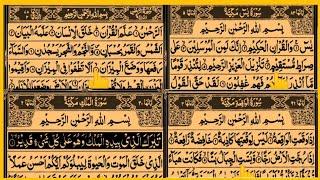 بِسْمِ اللهِ الرَّحْمٰنِ الرَّحِيْمِ
اَلرَّحْمٰنُ عَلَّمَ الْقُرْاٰنَ خَلَقَ الْاِنْسَانَ عَلَّمَهُ الْبَيَانَ
اَلشَّمْسُ وَالْقَمَرُ بِحُسْبَانٍ وَّالنَّجْمُ وَالشَّجَرُ يَسْجُدٰنِ وَالسَّمَآءَ
رَفَعَهَا وَوَضَعَ الْمِيْزَانَ اَلَّا تَطْغَوْا فِي الْمِيْزَانِ وَاَقِيْمُوا
سُوْرَةُ يٰسٓ مَكِّيَّةٌ
بِسْمِ اللهِ الرَّحْمٰنِ الرَّحِيْمِ
يٰسٓ وَالْقُرْاٰنِ الْحَكِيْمِ اِنَّكَ لَمِنَ الْمُرْسَلِيْنَ عَلٰى
صِرَاطٍ مُّسْتَقِيْمٍ تَنْزِيْلَ الْعَزِيْزِ الرَّحِيْمِ
فَهُمْ غٰفِلُوْنَ لَقَدْ حَقَّ الْقَوْلُ
سُوْرَةُ الْمُلْكِ مَكِّيَّةٌ
بِسْمِ اللهِ الرَّحْمٰنِ الرَّحِيْمِ
تَبٰرَكَ الَّذِيْ بِيَدِهِ الْمُلْكُ وَهُوَ عَلٰى كُلِّ شَيْءٍ قَدِيْرُ
الَّذِيْ خَلَقَ الْمَوْتَ وَالْحَيٰوةَ لِيَبْلُوَكُمْ اَيُّكُمْ اَحْسَنُ عَمَلًا
سُوْرَةُ الْوَاقِعَةِ مَكِّيَّةٌ
بِسْمِ اللهِ الرَّحْمٰنِ الرَّحِيْمِ
اِذَا وَقَعَتِ الْوَاقِعَةُ لَيْسَ لِوَقْعَتِهَا كَاذِبَةٌ خَافِضَةٌ رَّافِعَةٌ
اِذَا رُجَّتِ الْاَرْضُ رَجًّا وَّبُسَّتِ الْجِبَالُ بَسًّا فَكَانَتْ هَبَآءً